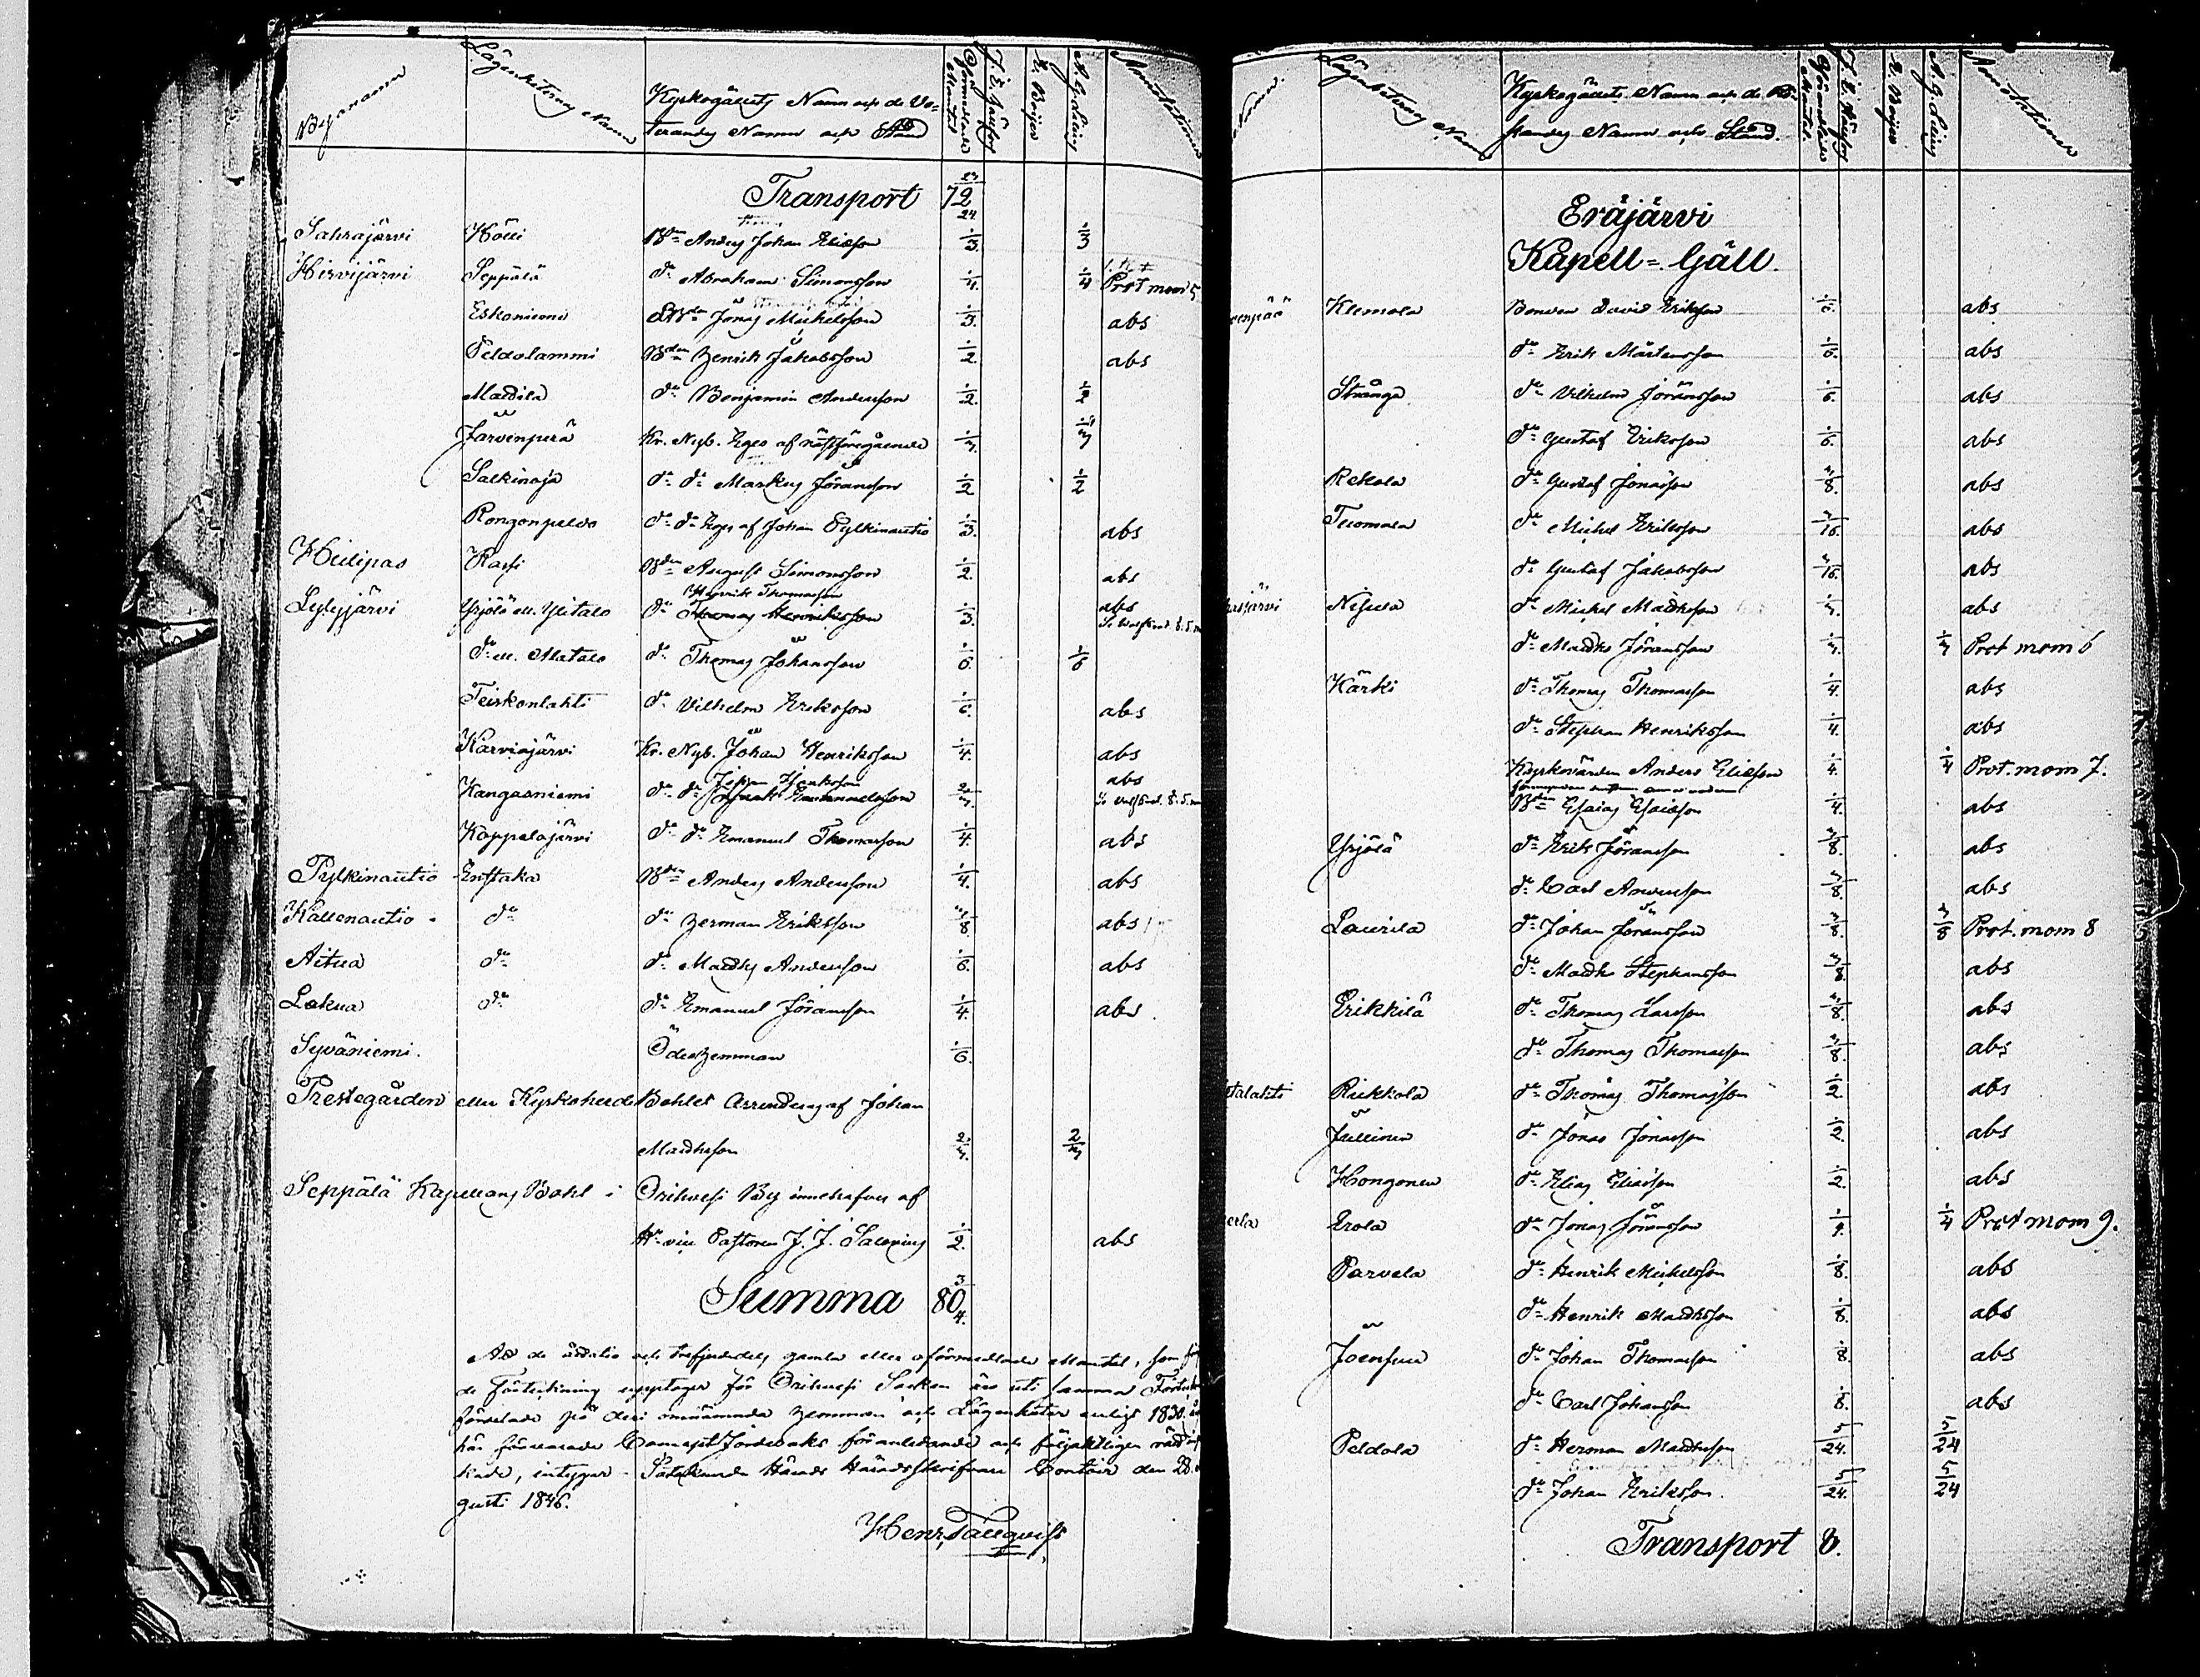 Bynamn Lägenheterns Namn Kyrkogällets Namn och de Vo-
terandes Namn och Stånd Oförmedlade Mantal A. G. Leinig Annotationer
Transport 72 23/24
Sahrajärvi Kölli Bdn Anders Johan Eliasson 1/3. 1/3
Hirvijärvi Seppälä do Abraham Simonsson 1/4. 1/4 Prot mom 5
Eskoniemi Jonas Michelsson 1/3. abs
Peldolammi Bdn Henrik Jakobsson 1/2. abs
Mattila do Benjamin Andersson 1/2. 1/2
Järvenperä Kr. Nyb. Eges af näst föregående
Salkinoja do do Markus Jöransson 1/2 1/2
Rongonpeldo do do Eges af Johan Pylkinautio 1/3. abs
Heilipas Kassi Bdn August Simonsson 1/2. abs
Henrik Thomasson
Lylyjärvi Yrjölä ell. Ylitalo do Thomas Henriksson 1/3. abs
do ell. Alatalo do Thomas Johansson 1/6. 1/6
Teiskonlahti do Vilhelm Eriksson 1/6. abs
Karviajärvi Kr. Nyb. Johan Henriksson 1/4. abs
Kangasniemi do do Emanuelsson abs
Koppelojärvi do do Emanuel Thomasson 1/4. abs
Pylkinautio Enstaka Bdn Anders Andersson 1/4. abs
Kallenautio do do Herman Eriksson 3/8. abs
Aitua do do Matths Andersson 1/6. abs
Lakua do do Emanuel Jöransson 1/4. abs
Syväniemi. Ödeshemman 1/6.
Prestegården eller Kyrkoherde Bohlet Arrenderas af Johan
Matthsson 2/3. 2/3
Seppälä Kapellans Bohl i Orihvesi By innehafves af
Hr vice Pastoren J. J. Salovius 1/2. abs
Summa 80 3/4.
Att de åttatio och trefjerdedels gamla eller oförmedlade Mantal, som
de Förteckning upptager för Orihvesi Socken äro uti samma
fördelade på deri omnämnda hemman och Lägenheter enligt 1830
här förvarade Concept Jordeboks föranledande och följaktligen
intygar Satakunda Härads Häradsskrifvare Contoir den 28
gusti 1846.
Henr. Tallqvist
Lägenheterns Namn Kyrkogällets Namn och de Vo-
terandes Namn och Stånd. Oförmedlade Mantal. A. G. Leinig Annotationer
Eräjärvi
Kapell=Gäll.
Klemola Bonden David Eriksson 1/6. abs
do Erik Mårtensson 1/6. abs
Strånga do Vilhelm Jöransson 1/6. abs
do Gustaf Eriksson 1/6. abs
Rekola do Gustaf Jonasson 3/8. abs
Tuomala do Michel Eriksson 3/16. abs
do Gustaf Jakobsson 3/16. abs
Nisula do Michel Matthsson abs
do Matths Jöransson Prot mom 6
Kärki do Thomas Thomasson 1/4. abs
do Stephan Henriksson 1/4. abs
Kyrkovärden Anders Eliasson 1/4. 1/4 Prot. mom 7.
Bdn Esaias Esaiasson 1/4. abs
Yrjölä do Erik Jöransson 3/8. abs
do Carl Andersson 3/8. abs
Laurila do Johan Jöransson 3/8. 3/8 Prot. mom 8
do Matths Stephansson 3/8. abs
Erikkilä do Thomas Larsson 3/8. abs
do Thomas Thomasson 3/8. abs
Riekkola do Thomas Thomasson 1/2. abs
Jullinen do Jonas Jonasson 1/2. abs
Hongonen do Elias Eliasson 1/2. abs
Erola do Jonas Jöransson 1/4. 1/4 Prot mom 9.
Parvela do Henrik Michelsson 1/8. abs
do Henrik Matthsson 1/8. abs
Joensuu do Johan Thomasson 1/8. abs
do Carl Johansson 1/8. abs
Peldola do Herman Matthsson 5/24. 5/24
do Johan Eriksson. 5/24. 5/24
Transport 8.